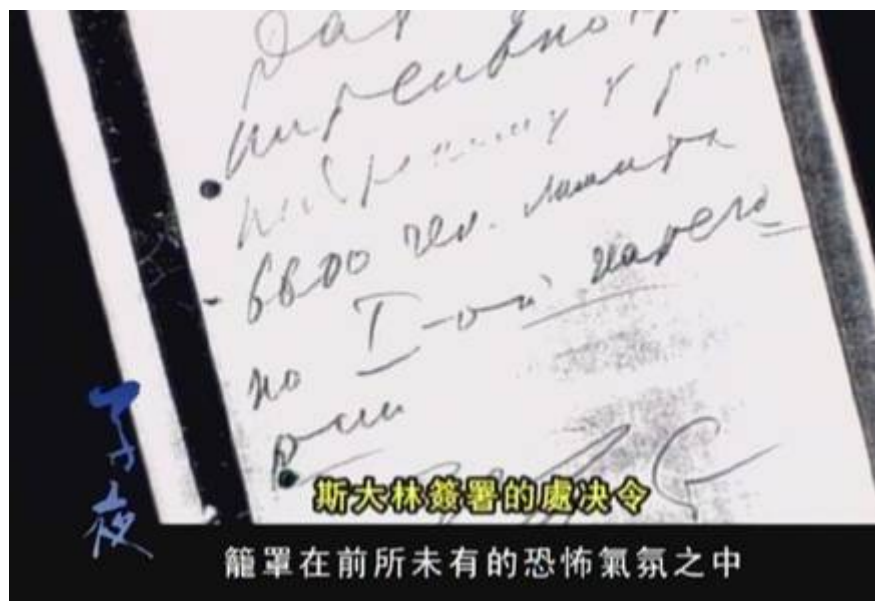 6600 чел. лимита
по I-ой катего
рии
子夜
斯大林簽署的處决令
籠罩在前所未有的恐怖氣氛之中